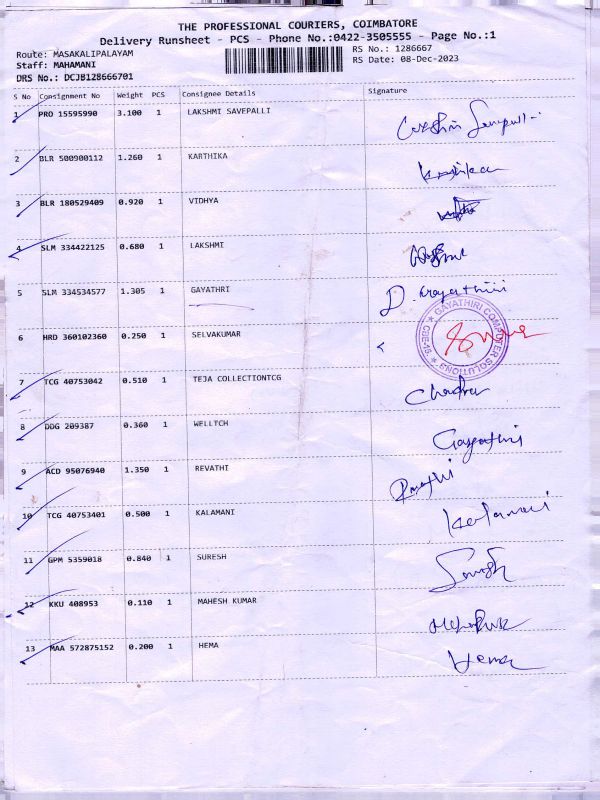 THE PROFESSIONAL COURIERS, COIMBATORE
Delivery Runsheet - PCS - Phone No.:0422-3505555 - Page No.:1
Route: MASAKALIPALAYAM
Staff: MAHAMANI
DRS No.: DCJB128666701
RS No.: 1286667
RS Date: 08-Dec-2023
S No Consignment No Weight PCS Consignee Details Signature
1 PRO 15595990 3.100 1 LAKSHMI SAVEPALLI
2 BLR 500900112 1.260 1 KARTHIKA
3 BLR 180529409 0.920 1 VIDHYA
4 SLM 334422125 0.680 1 LAKSHMI
5 SLM 334534577 1.305 1 GAYATHRI D. Gayathiri
6 HRD 360102360 0.250 1 SELVAKUMAR
GAYATHIRI COMPUTER SOLUTIONS CBE-15
7 TCG 40753042 0.510 1 TEJA COLLECTIONTCG Chandra
8 DDG 209387 0.360 1 WELLTCH Gayathri
9 ACD 95076940 1.350 1 REVATHI
10 TCG 40753401 0.500 1 KALAMANI Kalamani
11 GPM 5359018 0.840 1 SURESH Suresh
12 KKU 408953 0.110 1 MAHESH KUMAR
13 MAA 572875152 0.200 1 HEMA Hema